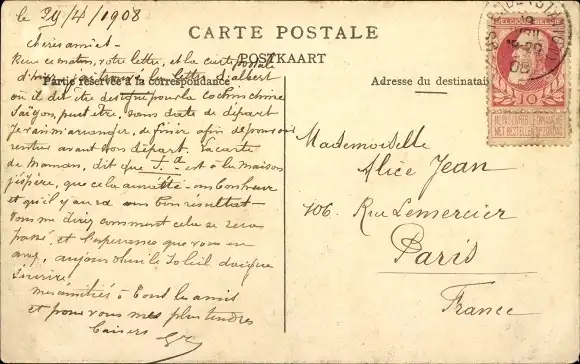 le 29/4/1908
CARTE POSTALE
POSTKAART
Partie réservée à la correspondance
Adresse du destinatai
chères amies
Reçu ce matin, votre lettre, et la carte postale
d'hier, j'ai la lettre d'albert
où il dit être désigné pour la Cochinchine
Saïgon, peut être, sans date de départ
Je vais m'arranger, de finir afin de pouvoir
rentrer avant son départ. la carte
de Maman, dit que est à la maison
j'espère, que cela
et qu'il y aura un bon résultat
Vous me direz comment cela se sera
passé, et l'espérance que vous
aujourd'hui le Soleil daigne
Sourire!
mes amitiés à tous les amis
et pour vous mes plus tendres
baisers
Mademoiselle
Alice Jean
106. Rue Lemercier
Paris
France
BELGIQUE BELGIË
10
NE PAS LIVRER LE DIMANCHE
NIET BESTELLEN OP ZONDAG